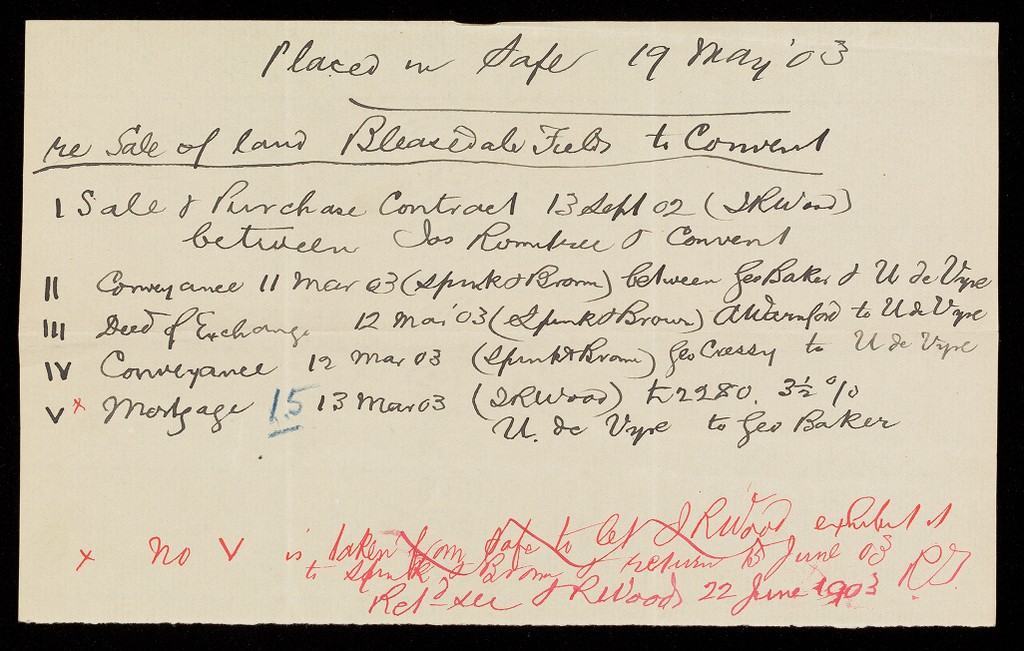 Placed in Safe 19 May '03
re Sale of land Bleasdale Fields to Convent
I Sale & Purchase Contract 13 Sept 02 (JRWood)
between Jos Rowntree & Convent
II Conveyance 11 Mar 03 (Spink & Brown) between Geo Baker & U de Vyre
III Deed of Exchange 12 Mar '03 (Spink & Brown) A Warnford to U de Vyre
IV Conveyance 12 Mar 03 (Spink & Brown) Geo Cressy to U de Vyre
V x Mortgage 15 13 Mar 03 (JRWood) £2280. 3½ %
U. de Vyre to Geo Baker
x No V is taken from Safe to let JRWood exhibit it
to Spink & Brown & return 15 June 03 R.T.
Ret^d see JRWoods 22 June 1903